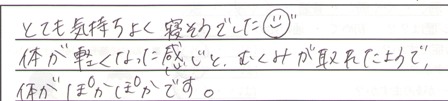 とても気持ちよく寝そうでした☺
体が軽くなった感じと、むくみが取れたようで、
体がぽかぽかです。